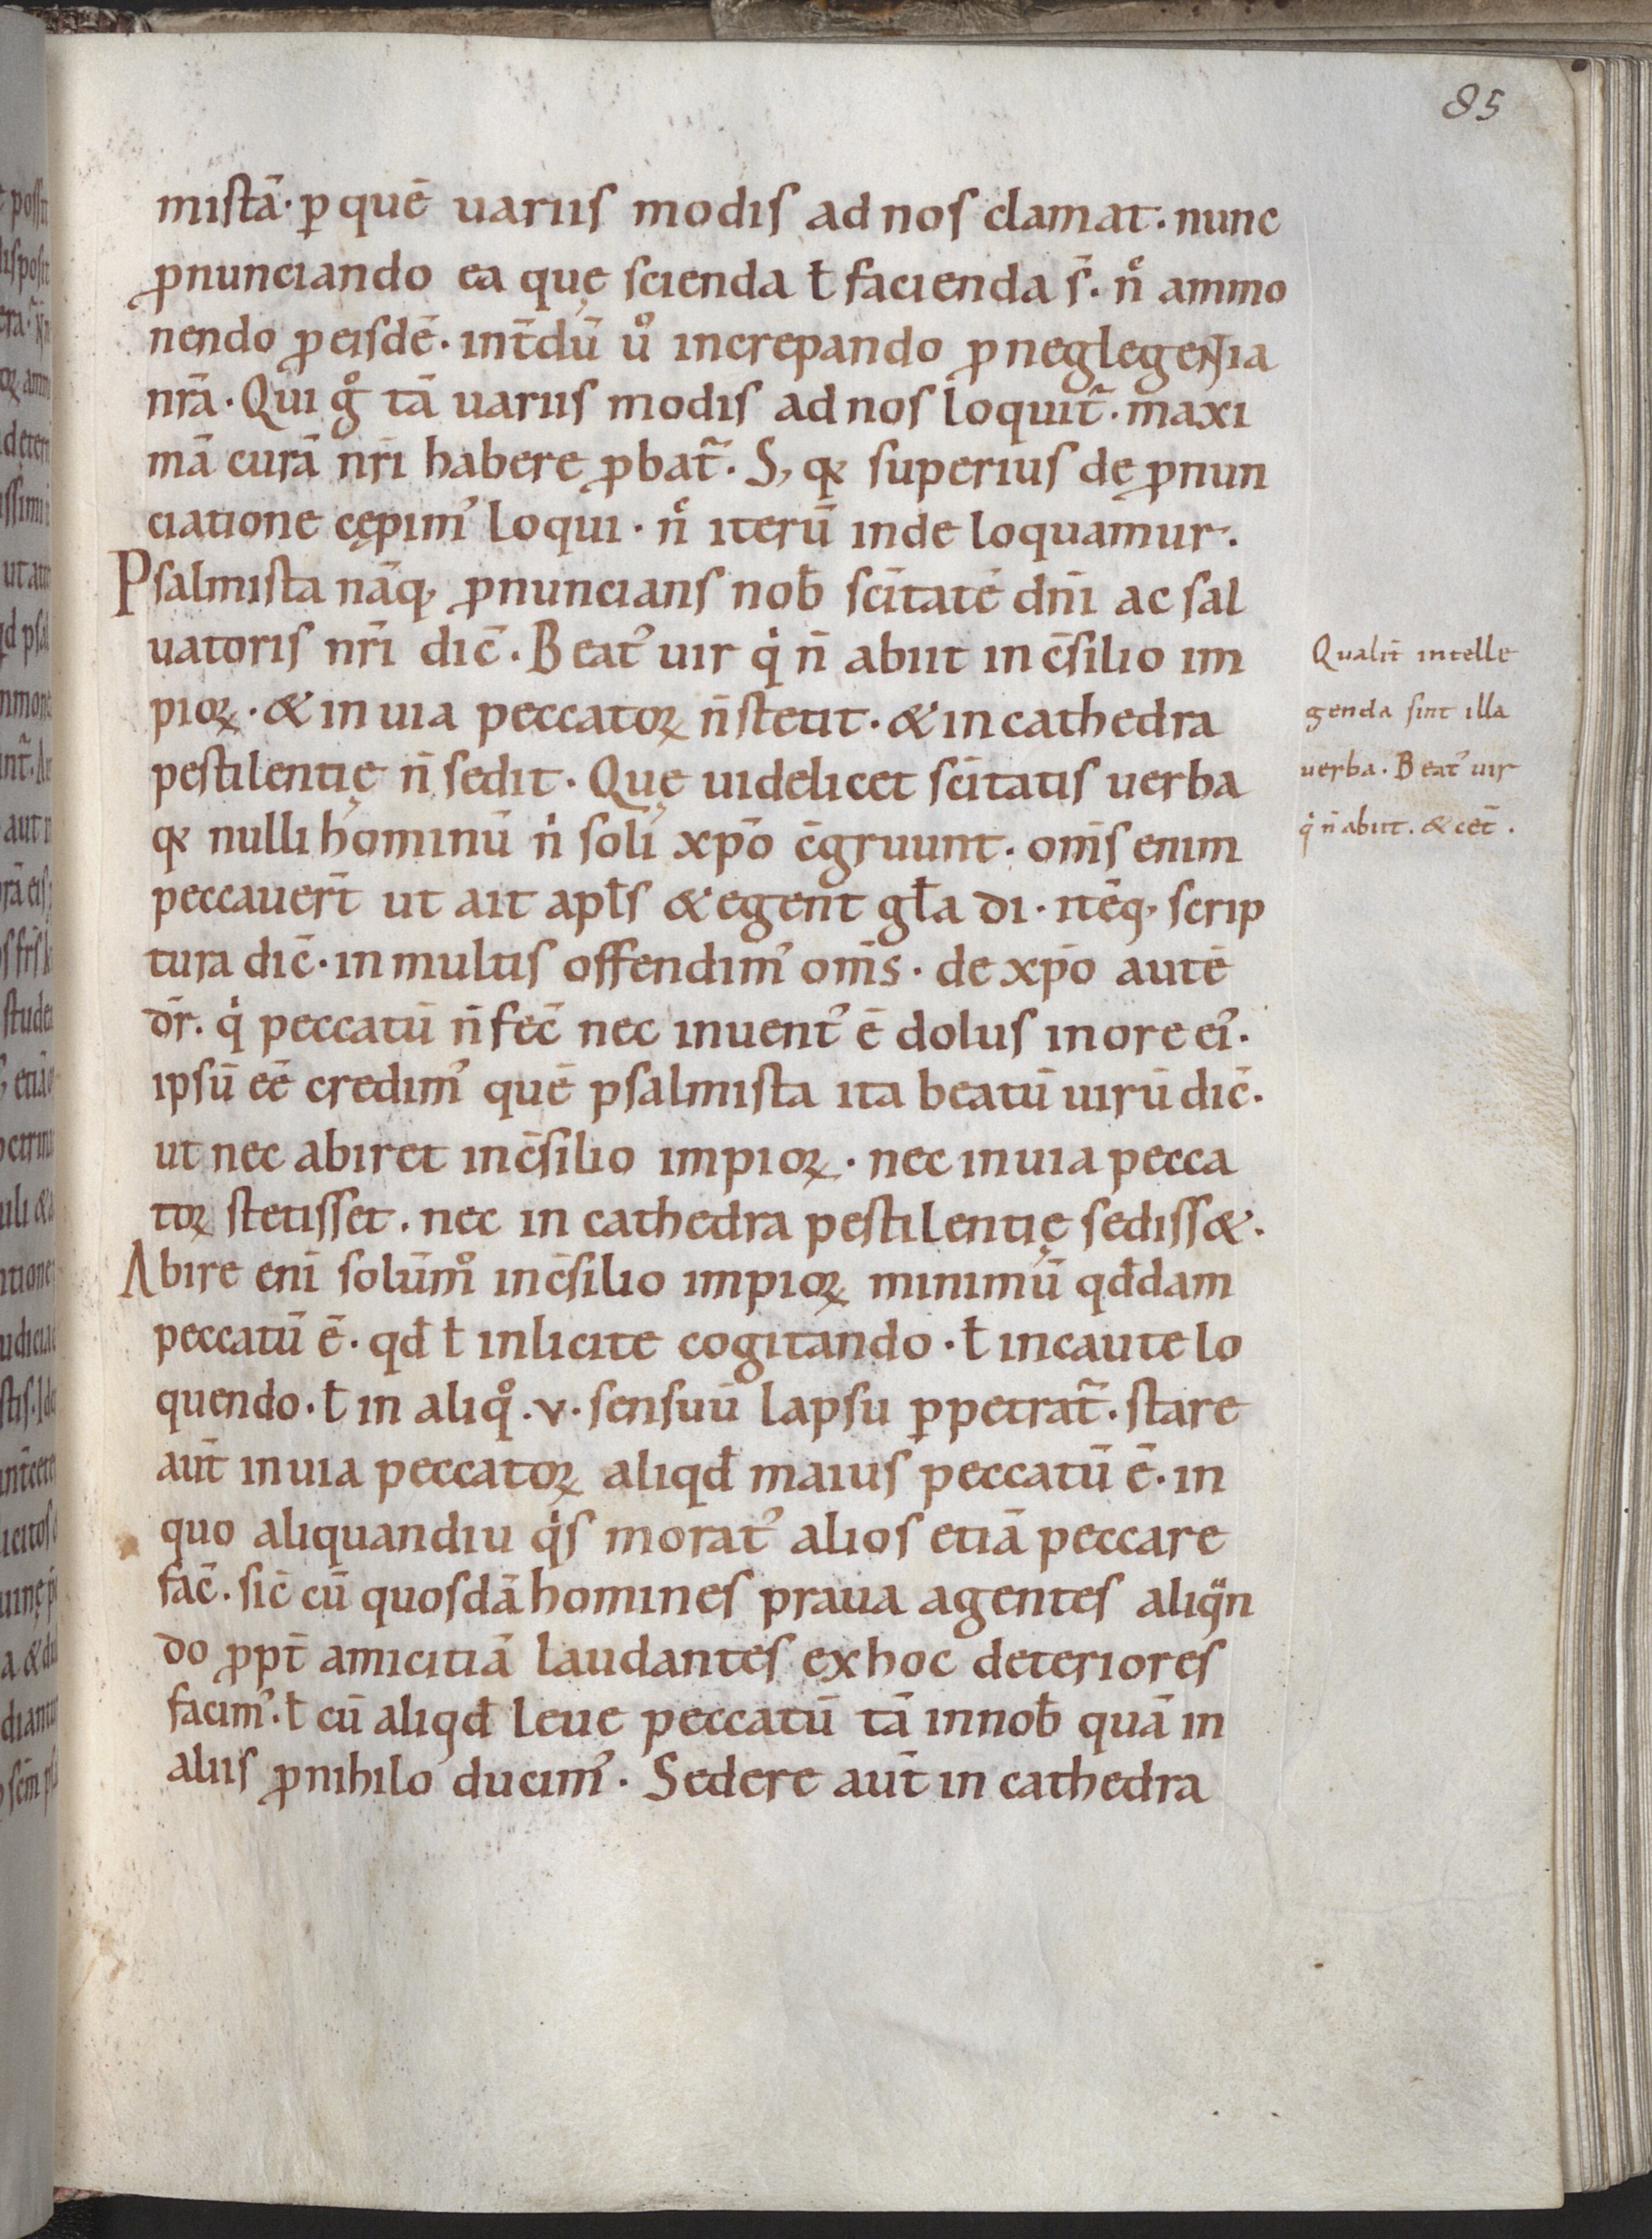 85
mistā· ꝑ quē uariis modis ad nos clamat· nunc
ꝓnunciando ea quę scienda ł facienda s̄· nͨ ammo
nendo ꝓ eisdē· int̄dū uͦ increpando ꝓ neglegentia
nrā· Qui gͦ tā uariis modis ad nos loquit̄· maxi
mā curā nr̄i habere ꝓbat̄· S, qꝫ superius dę ꝓnun
ciatione cępim᾽ loqui· nͨ iterū inde loquamur·
Psalmista nāq, ꝓnuncians nob̄ sc̄itatē dn̄i ac sal
uatoris nr̄i dic̄· Beat᾽ uir qͥ n̄ abiit in c̄silio im
pioꝝ· & in uia peccatoꝝ n̄ stetit· & in cathedra
pestilentię n̄ sedit· Quę uidelicet sc̄itatis uerba
qꝫ nulli hominū nͥ soli xp̄o c̄gruunt· om̄s enim
peccauer̄t ut ait apłs & egent gła d̄i· itēq, scrip
tura dic̄· in multis offendim᾽ om̄s· de xp̄o autē
dr̄· qͥ peccatū n̄ fec̄ nec inuent᾽ ē dolus in ore ei᾽·
ipsū eē credim᾽ quē psalmista ita beatū uirū dic̄·
ut nec abiret in c̄silio impioꝝ· nec in uia pecca
toꝝ stetisset· nec in cathedra pestilentię sediss&·
Abire enī solūmͦ in c̄silio impioꝝ minimū qđdam
peccatū ē· qđ ł inlicite cogitando· ł incaute lo
quendo· ł in aliqͦ ·v· sensuū lapsu ꝑpetrat̄· stare
aut̄ in uia peccatoꝝ aliqđ maius peccatū ē· in
quo aliquandiu qͥs morat᾽ alios etiā peccare
fac̄· sic̄ cū quosdā homines praua agentes aliqᷓn
do ꝓpt̄ amicitiā laudantes ex hoc deteriores
facim᾽· ł cū aliqđ leue peccatū tā in nob̄ quā in
aliis ꝓ nihilo ducim᾽· Sedere aut̄ in cathedra
Qualit̄ intelle
genda sint illa
uerba· Beat᾽ uir
qͥ n̄ abiit· & cet̄·